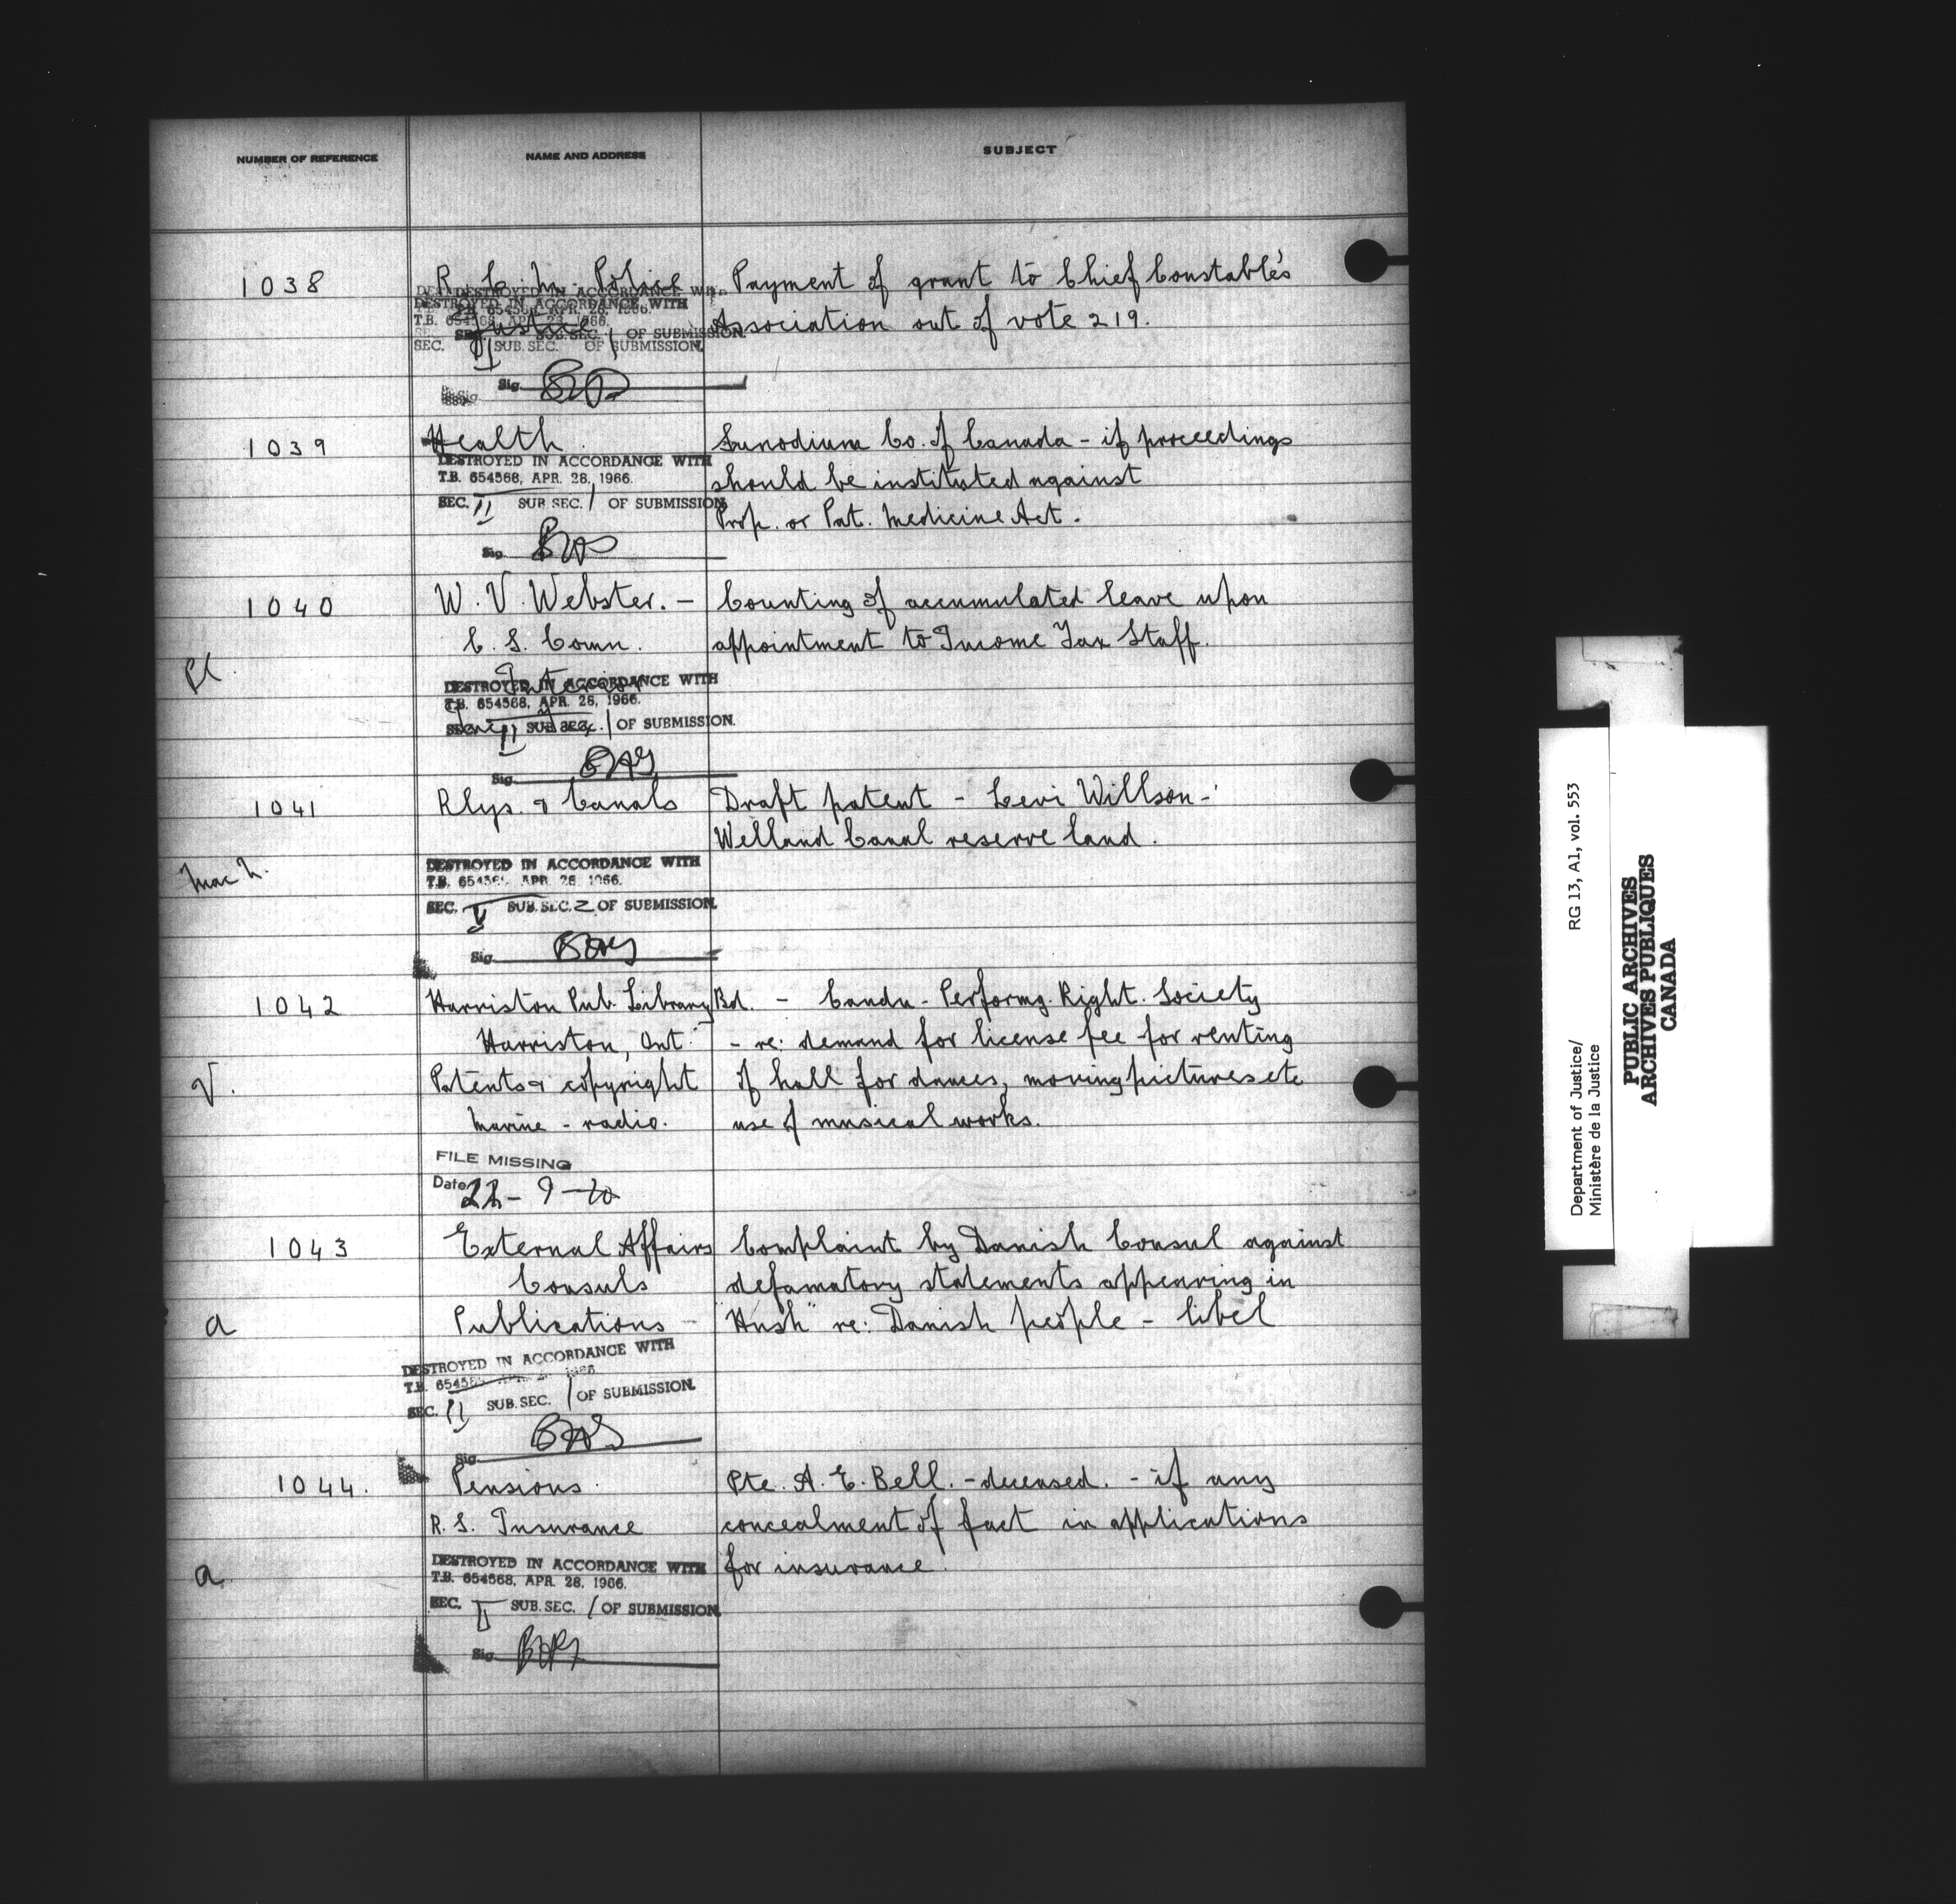 NUMBER OF REFERENCE NAME AND ADDRESS SUBJECT
1038 R. C. M. Police Payment of grant to Chief Constable's
DESTROYED IN ACCORDANCE WITH
T.B. 654568, APR. 28, 1966.
Justice Association out of vote 219.
SEC. II SUB. SEC. 1 OF SUBMISSION.
Sig.
1039 Health Sunodium Co. of Canada - if proceedings
DESTROYED IN ACCORDANCE WITH
T.B. 654568, APR. 28, 1966. should be instituted against
SEC. II SUB SEC. 1 OF SUBMISSION
Prop. or Pat. Medicine Act.
Sig.
1040 W. V. Webster. - Counting of accumulated leave upon
C. S. Comn. appointment to Income Tax Staff.
Interior
DESTROYED IN ACCORDANCE WITH
T.B. 654568, APR. 28, 1966.
SEC. II SUB SEC. 1 OF SUBMISSION.
Sig.
1041 Rlys. & Canals Draft patent - Levi Willson -
Welland Canal reserve land.
Mac N.
DESTROYED IN ACCORDANCE WITH
T.B. 65456 APR. 28, 1966.
SEC. V SUB. SEC. 2 OF SUBMISSION.
Sig.
1042 Harriston Pub. Library Bd. - Candn. Performg. Right. Society
Harriston, Ont. - re: demand for license fee for renting
V. Patents & copyright of hall for dances, moving pictures etc
Marine - radio. use of musical works.
FILE MISSING
Date 22-9-
1043 External Affairs Complaint by Danish Consul against
Consuls defamatory statements appearing in
a Publications - "Hush" re: Danish people - libel
DESTROYED IN ACCORDANCE WITH
T.B. 65456
SEC. II SUB. SEC. 1 OF SUBMISSION.
Sig.
1044. Pensions. Pte. A. E. Bell. - deceased. - if any
R. S. Insurance concealment of fact in applications
a for insurance.
DESTROYED IN ACCORDANCE WITH
T.B. 654568, APR. 28, 1966.
SEC. II SUB. SEC. 1 OF SUBMISSION
Sig.
Department of Justice/ RG 13, A1, vol. 553
Ministère de la Justice
PUBLIC ARCHIVES
ARCHIVES PUBLIQUES
CANADA